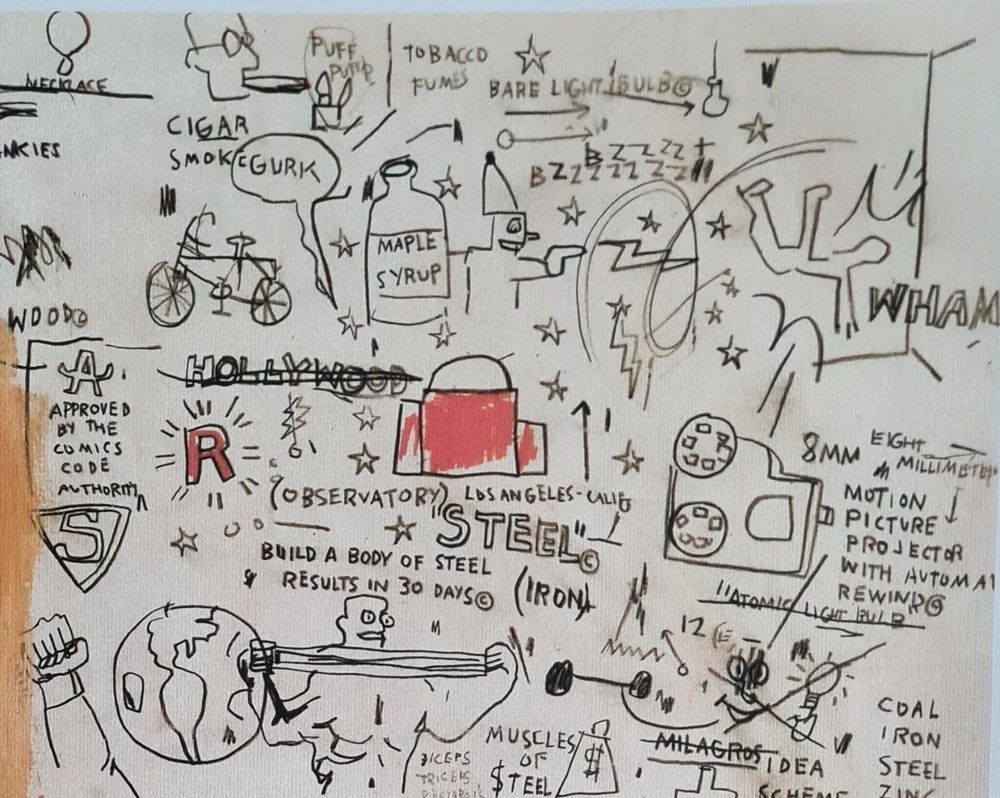 NECKLACE
CIGAR
SMOKE
PUFF
PUFF
TOBACCO
FUMES
BARE LIGHT BULB©
BZZZZZ
BZZZZZZZ
GURK
MAPLE
SYRUP
WHAM
WOOD©
HOLLYWOOD
A
APPROVED
BY THE
COMICS
CODE
AUTHORITY
R
S
(OBSERVATORY) LOS ANGELES-CALIF
"STEEL"©
BUILD A BODY OF STEEL
RESULTS IN 30 DAYS©
(IRON)
8MM
EIGHT
MILLIMETER
MOTION
PICTURE
PROJECTOR
WITH AUTOMAT
REWIND©
"ATOMIC LIGHT BULB
12
BICEPS
TRICEPS
MUSCLES
OF
$TEEL
$
MILAGROS IDEA
SCHEME
COAL
IRON
STEEL
ZINC